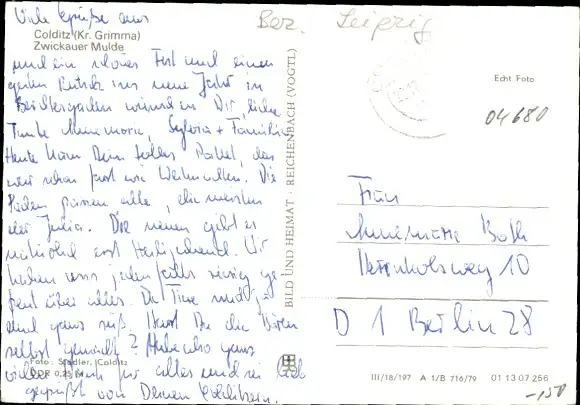 Viele Grüße aus
Colditz (Kr. Grimma)
Zwickauer Mulde
und ein schönes Fest und einen
guten Rutsch ins neue Jahr in
wünschen Wir, liebe
Tante Annemarie, Sylvia + Familie
Heute kam Dein tolles Paket, das
war schon fast wie Weihnachten. Die
passen alle, die meisten
der Julia. Die neuen gibt es
natürlich erst Heiligabend. Wir
haben uns jedenfalls riesig ge
freut über alles. Die Tiere sind
und ganz süß. Hast Du die
selbst gemacht? Habe also ganz
vielen Dank für alles und sei
gegrüßt von Deinen Colditzern.
Foto: Stadler, Colditz
DDR 0,25 M
BILD UND HEIMAT · REICHENBACH (VOGTL)
Bez. Leipzig
Echt Foto
04680
Frau
Annemarie Both
10
D 1 Berlin 28
III/18/197 A 1/B 716/79 01 13 07 256
-150